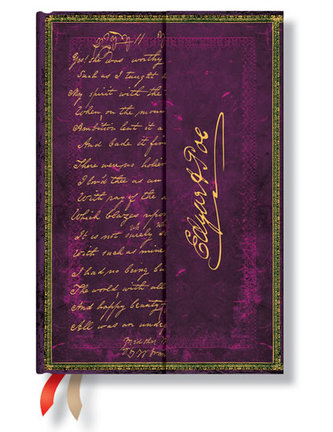 Yes! she was worthy
Such as I taught
My spirit with the
When on the mou
Ambition lent it a
And bade it fir
There were no holier
I lov'd thee as an
With ray of the
Which blazes upon
It is not surely
With such as mine
I had no being bu
The world with all
And happy beauty
All was an unde
Edgar A Poe